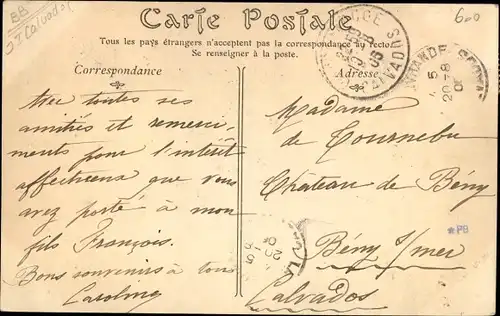 BB
Calvados
6-0
Carte Postale
Tous les pays étrangers n'acceptent pas la correspondance au recto.
Se renseigner à la poste.
Correspondance
Adresse
Avec toutes ses
amitiés et remerci-
ments pour l'intérêt
affectueux que vous
avez porté à mon
fils François.
Bons souvenirs à tous
Caroline
Madame
de Tournebu
Château de Bény
Bény s/mer
Calvados
*PB
CALVADOS
5
20-8